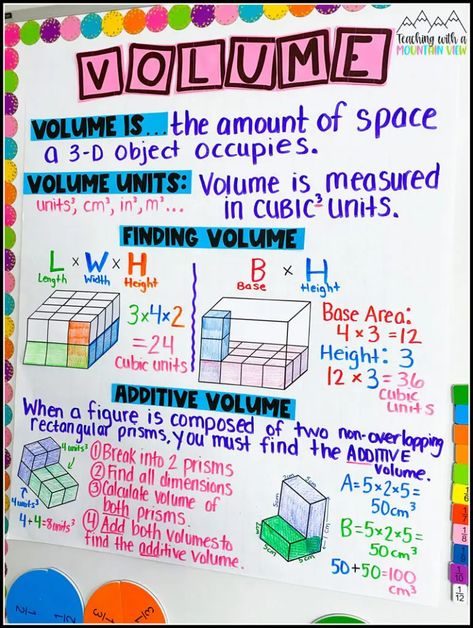 Teaching with a
MOUNTAIN VIEW
VOLUME
VOLUME IS... the amount of space
a 3-D object occupies.
VOLUME UNITS: Volume is measured
units³, cm³, in³, m³... in CUBIC³ units.
FINDING VOLUME
L x W x H
Length Width Height
B x H
Base Height
3x4x2
=24
cubic units
Base Area:
4 x 3 =12
Height: 3
12 x 3 = 36
cubic
units
ADDITIVE VOLUME
When a figure is composed of two non-overlapping
rectangular prisms, you must find the ADDITIVE
volume.
4 units³
4 units³
4+4=8units³
① Break into 2 prisms
② Find all dimensions
③ Calculate volume of
both prisms.
④ Add both volumes to
find the additive volume.
2cm
5cm
5cm
5cm
A=5x2x5=
50cm³
B=5x2x5=
50cm³
50+50=100
cm³
1/2
1/3
1/6
1/8
1/10
1/12